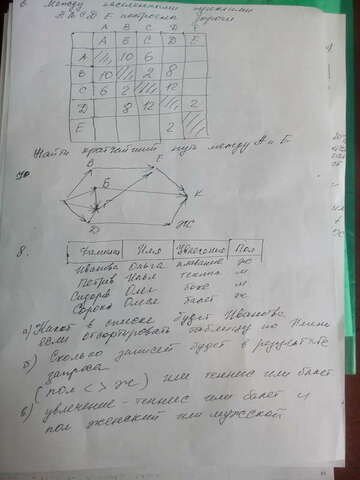 6. Между населенными пунктами
A B C D E построены дороги
A B C D E
A 10 6
B 10 2 8
C 6 2 12
D 8 12 2
E 2
Найти кратчайший путь между A и E
В Е
Б
К
Д Ж
8.
Фамилия Имя Увлечение Пол
Иванова Ольга плавание ж
Петров Илья теннис м
Сидоров Олег бокс м
Сорока Ольга балет ж
а) Какой в списке будет Иванова,
если отсортировать таблицу по Имени
б) Сколько записей будет в результате
запроса
(пол <> ж) или теннис или балет
в) увлечение - теннис или балет и
пол женский или мужской